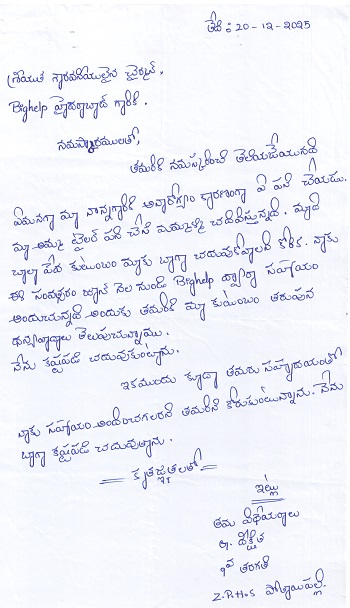 తేది : 20-12-2025
శ్రీయుత గౌరవనీయులైన చైర్మన్,
Bighelp హైదరాబాద్ గారికి.
నమస్కారములతో,
తమరికి నమస్కరించి తెలియజేయునది
ఏమనగా మా నాన్నగారికి అనారోగ్యం కారణంగా ఏ పని చేయడు.
మా అమ్మ టైలర్ పని చేసి మమ్మల్ని చదివిస్తున్నది. మాది
చాలా పేద కుటుంబం మాకు బాగా చదువుకోవాలని కోరిక. నాకు
ఈ సంవత్సరం జూన్ నెల నుండి Bighelp ద్వారా సహాయం
అందుచున్నది అందుకు తమరికి మా కుటుంబం తరుపున
ధన్యవాదాలు తెలుపుచున్నాము.
నేను కష్టపడి చదువుకుంటాను.
ఇకముందు కూడా తమరు సహృదయంతో
నాకు సహాయం అందించగలరని తమరిని కోరుకుంటున్నాను. నేను
బాగా కష్టపడి చదువుతాను.
కృతజ్ఞతలతో
ఇట్లు
తమ విధేయురాలు
దీక్షిత
9వ తరగతి
Z.P.H.S పోత్నాయిపల్లి.